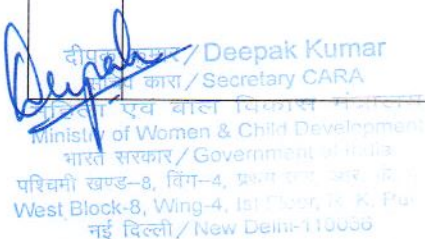 Deepak
दीपक कुमार / Deepak Kumar
कारा / Secretary CARA
महिला एवं बाल विकास मंत्रालय
Ministry of Women & Child Development
भारत सरकार / Government of India
पश्चिमी खण्ड–8, विंग–4,
West Block-8, Wing-4, Ist Floor, R. K.
नई दिल्ली / New Delhi-110066